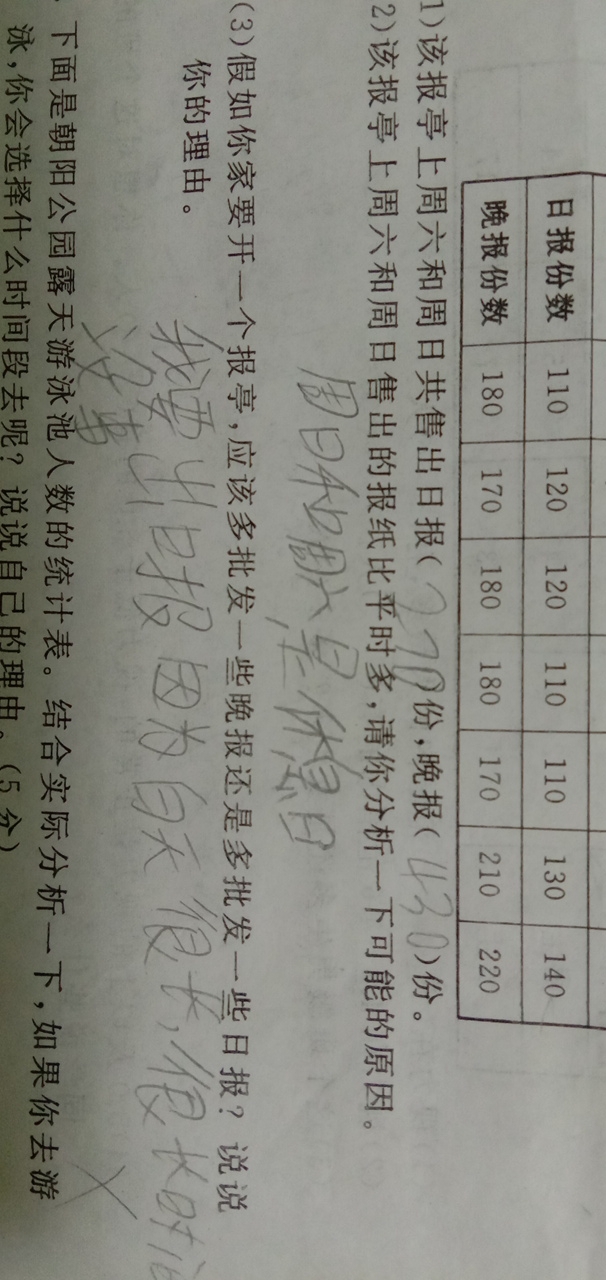 日报份数 110 120 120 110 110 130 140
晚报份数 180 170 180 180 170 210 220
1)该报亭上周六和周日共售出日报(270)份,晚报(430)份。
2)该报亭上周六和周日售出的报纸比平时多,请你分析一下可能的原因。
周日和周六是休息日
(3)假如你家要开一个报亭,应该多批发一些晚报还是多批发一些日报?说说
你的理由。
我要出日报因为白天很长,很长时
没事
下面是朝阳公园露天游泳池人数的统计表。结合实际分析一下,如果你去游
泳,你会选择什么时间段去呢?说说自己的理由。(5分)